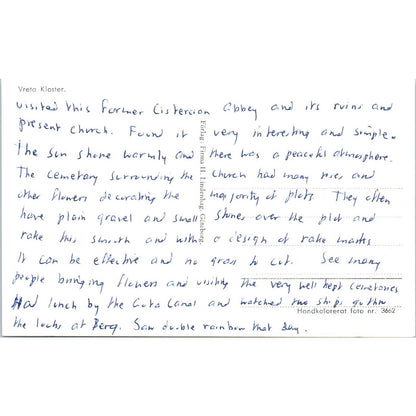 Vreta Kloster.
visited this former Cistercian Abbey and its ruins and
present church. Found it very interesting and simple.
The sun shone warmly and there was a peaceful atmosphere.
The cemetary surrounding the church had many roses and
other flowers decorating the majority of plots They often
have plain gravel and small stones over the plot and
rake this smooth and with a design of rake marks
It can be effective and no grass to cut. See many
people bringing flowers and visiting the very well kept cemetaries
Had lunch by the Gota Canal and watched the ships go thru
the locks at Berg. Saw double rainbow that day.
Förlag: Firma H. Lindenhag, Göteborg.
Handkolorerat foto nr. 3662